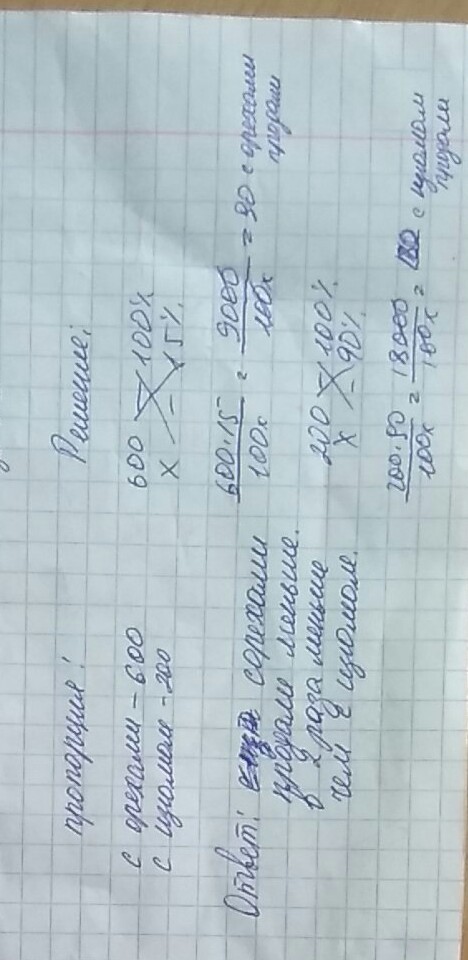 пропорция!
с орехами - 600
с изюмом - 200
Решение:
600 - 100%
x - 15%
600·15/100x = 9000/100x = 90 с орехами
продали
200 - 100%
x - 90%
200·90/100x = 18000/100x = 180 с изюмом
продали
Ответ: с орехами
продали меньше.
в 2 раза меньше
чем с изюмом.